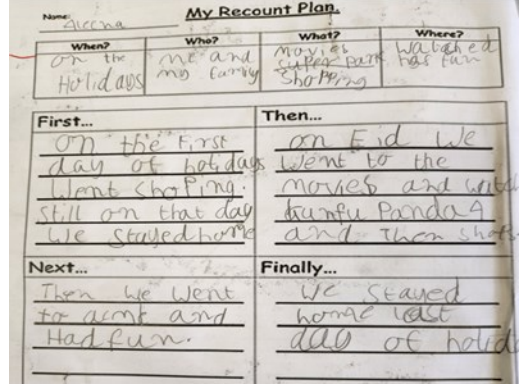 Name: Aleena
My Recount Plan.
When? Who? What? Where?
on the
Holidays
me and
my family
movies
super park
shopping
watched
has fun
First...
on the First
day of holidays
went shoping.
still on that day
we stayed home
Then...
on Eid we
went to the
movies and
kunfu Panda 4
and Then
Next...
Then we went
to and
Had fun.
Finally...
we stayed
home last
day of holida